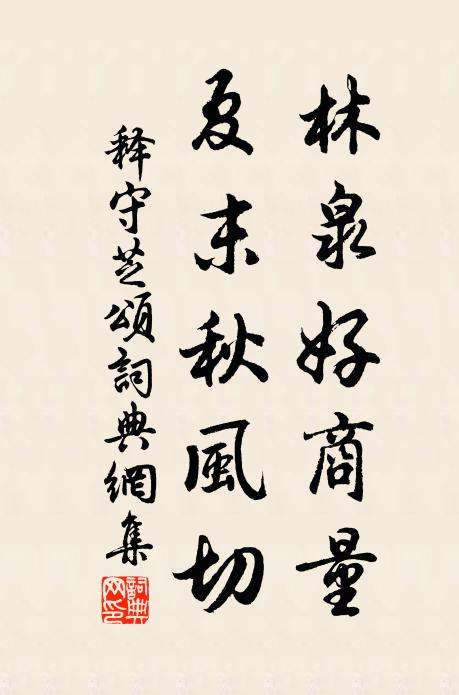 林泉好商量
夏末秋風切
释守芝頌詞典網集
詞典网印